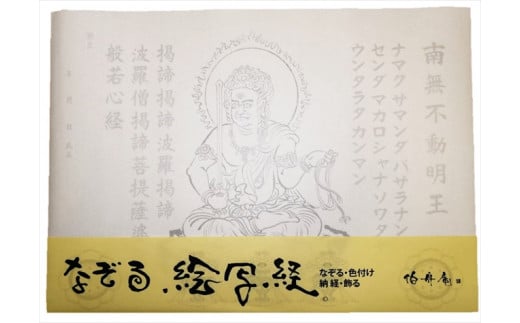 南無不動明王
ナマク サマンダ バサラナン
センダ マカロシャナ ソワタ
ウンタラタ カンマン
羯諦羯諦波羅羯諦
波羅僧羯諦菩提薩婆
般若心経
なぞる 絵写経
なぞる・色付け
納経・飾る
©